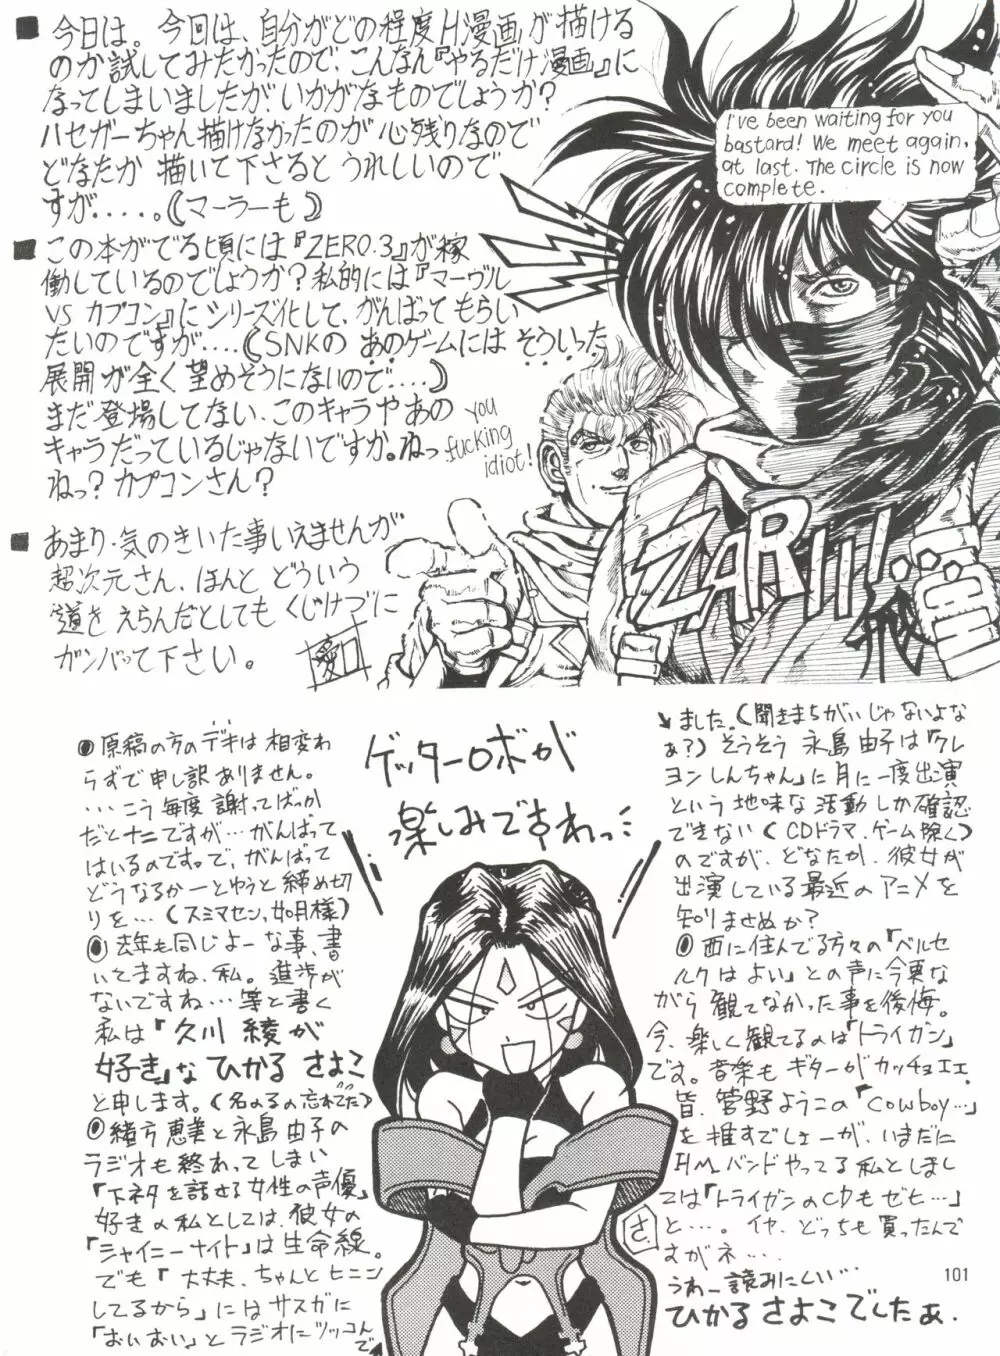 ■ 今日は。今回は、自分がどの程度H漫画が描ける
のか試してみたかったので、こんなん『やるだけ漫画』に
なってしまいましたが、いかがなものでしょうか?
ハセガーちゃん描けなかったのが心残りなので
どなたか描いて下さるとうれしいので
すが・・・・。(マーラーも)
■ この本がでる頃には『ZERO.3』が稼
働しているのでしょうか?私的には『マーヴル
VS カプコン』にシリーズ化して、がんばってもらい
たいのですが・・・・(SNKのあのゲームにはそういった
展開が全く望めそうにないので・・・・)
まだ登場してない、このキャラやあの
キャラだっているじゃないですか。ねっ
ねっ?カプコンさん?
■ あまり、気のきいた事いえませんが
超次元さん、ほんとどういう
道をえらんだとしてもくじけづに
ガンバって下さい。
I've been waiting for you
bastard! We meet again,
at last. The circle is now
complete.
you
fucking
idiot!
ZARIII!
飛
● 原稿の方のデキは相変わ
らずで申し訳ありません。
・・・こう毎度謝ってばっか
だとナニですが・・・がんばって
はいるのですっで、がんばって
どうなるかーとゆうと締め切
りを・・・(スミマセン,如月様)
● 去年も同じよーな事、書
いてますね、私。進歩が
ないですね・・・等と書く
私は「久川綾が
好き」な ひかる さよこ
と申します。(名のるの忘れてた)
● 緒方恵美と永島由子の
ラジオも終わってしまい
「下ネタを話せる女性の声優」
好きの私としては、彼女の
「シャイニーナイト」は生命線。
でも「大丈夫、ちゃんとヒニン
してるから」にはサスガに
「おいおい」とラジオにツッコんで
ゲッターロボが
楽しみですねっ
さ
ました。(聞きまちがいじゃないよな
ぁ?)そうそう永島由子は「クレ
ヨンしんちゃん」に月に一度出演
という地味な活動しか確認
できない(CDドラマ、ゲーム除く)
のですが、どなたか、彼女が
出演している最近のアニメを
知りませぬか?
● 西に住んでる方々の「ベルセ
ルクはよい」との声に今更な
がら観てなかった事を後悔。
今、楽しく観てるのは「トライガン」
です。音楽もギターがカッチョエエ。
皆、菅野ようこの「Cowboy…」
を推すでしょーが、いまだに
H.M.バンドやってる私としまし
ては「トライガンのCDもゼヒ…」
と…。イヤ、どっちも買ったんで
すがネ…
うわー読みにくい…
ひかる さよこでしたぁ.
101